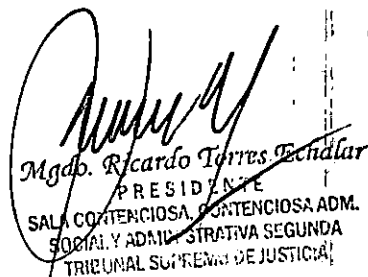 Mgdo. Ricardo Torres Echalar
PRESIDENTE
SALA CONTENCIOSA, CONTENCIOSA ADM.
SOCIAL Y ADMINISTRATIVA SEGUNDA
TRIBUNAL SUPREMO DE JUSTICIA